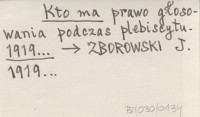 Kto ma prawo głoso-
wania podczas plebiscytu.
1919... → ZBOROWSKI J.
1919...
BI/030/0434